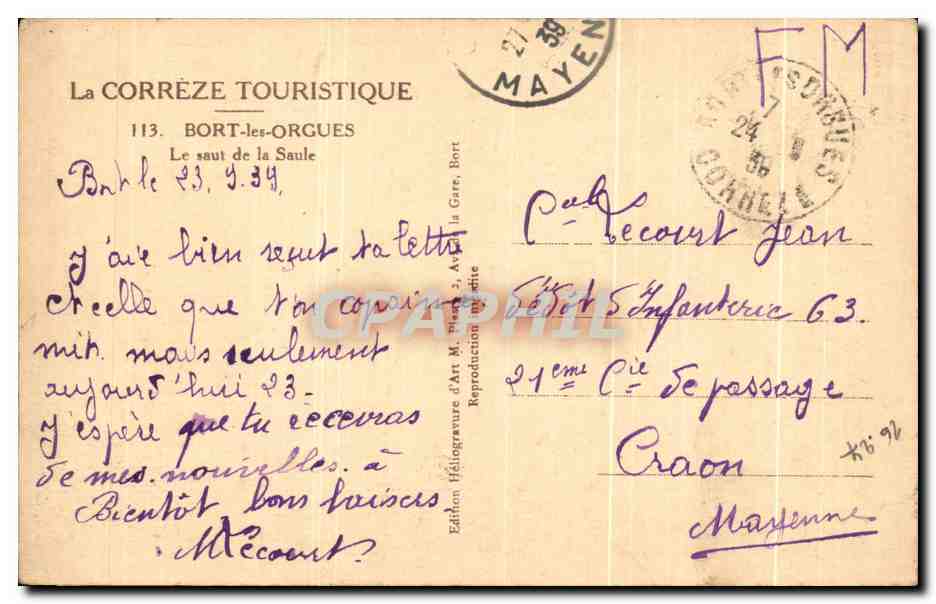 La CORRÈZE TOURISTIQUE
113. BORT-les-ORGUES
Le saut de la Saule
Bort le 23. 9. 39.
J'aie bien reçut ta lettre
et celle que ton copain
mit. mais seulement
aujourd'hui 23.
J'espère que tu recevras
de mes nouvelles. à
Bientôt bons baisers
M Lecourt.
Edition Héliogravure d'Art M. 2, Av. de la Gare, Bort
Reproduction interdite
27
39
MAYEN
FM
7
24
ORGUES
CORREZE
Cab Lecourt Jean
dépôt d'Infanterie 63.
21eme Cie de passage
Craon
Mayenne
26.24
CPAPHIL